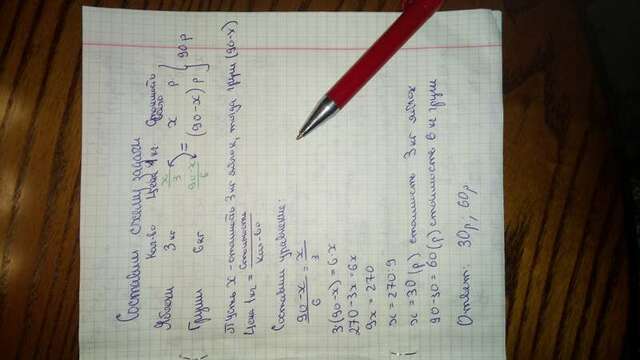 Составим схему задачи
Кол-во Цена 1 кг Стоимость всего
Яблоки 3 кг x/3 x р } 90 р
Груши 6 кг (90-x)/6 = (90-x) р
Пусть x - стоимость 3 кг яблок, тогда груш (90-x)
Цена 1 кг = Стоимость/Кол-во
Составим уравнение:
(90-x)/6 = x/3
3(90-x)=6x
270-3x=6x
9x=270
x=270:9
x=30 (р) стоимость 3 кг яблок
90-30=60 (р) стоимость 6 кг груш
Ответ: 30р; 60р